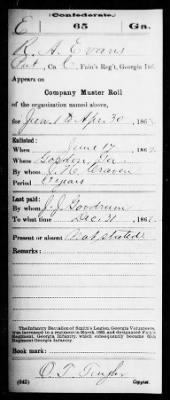 (Confederate.)
E 65 Ga.
R. A. Evans
Pvt, Co. E, Fain's Reg't, Georgia Inf.
Appears on
Company Muster Roll
of the organization named above,
for Jan 1 to Apr. 30, 186
Enlisted:
When June 17, 186
Where Gordon, Ga
By whom Craven
Period years
Last paid:
By whom J. J. Goodrum
To what time Dec. 31, 186
Present or absent Not stated
Remarks:
The Infantry Battalion of Smith's Legion, Georgia Volunteers,
was increased to a regiment in March, 1863, and designated Fain's
Regiment, Georgia Infantry, which subsequently became 65th
Regiment Georgia Infantry.
Book mark:
(642) Copyist.